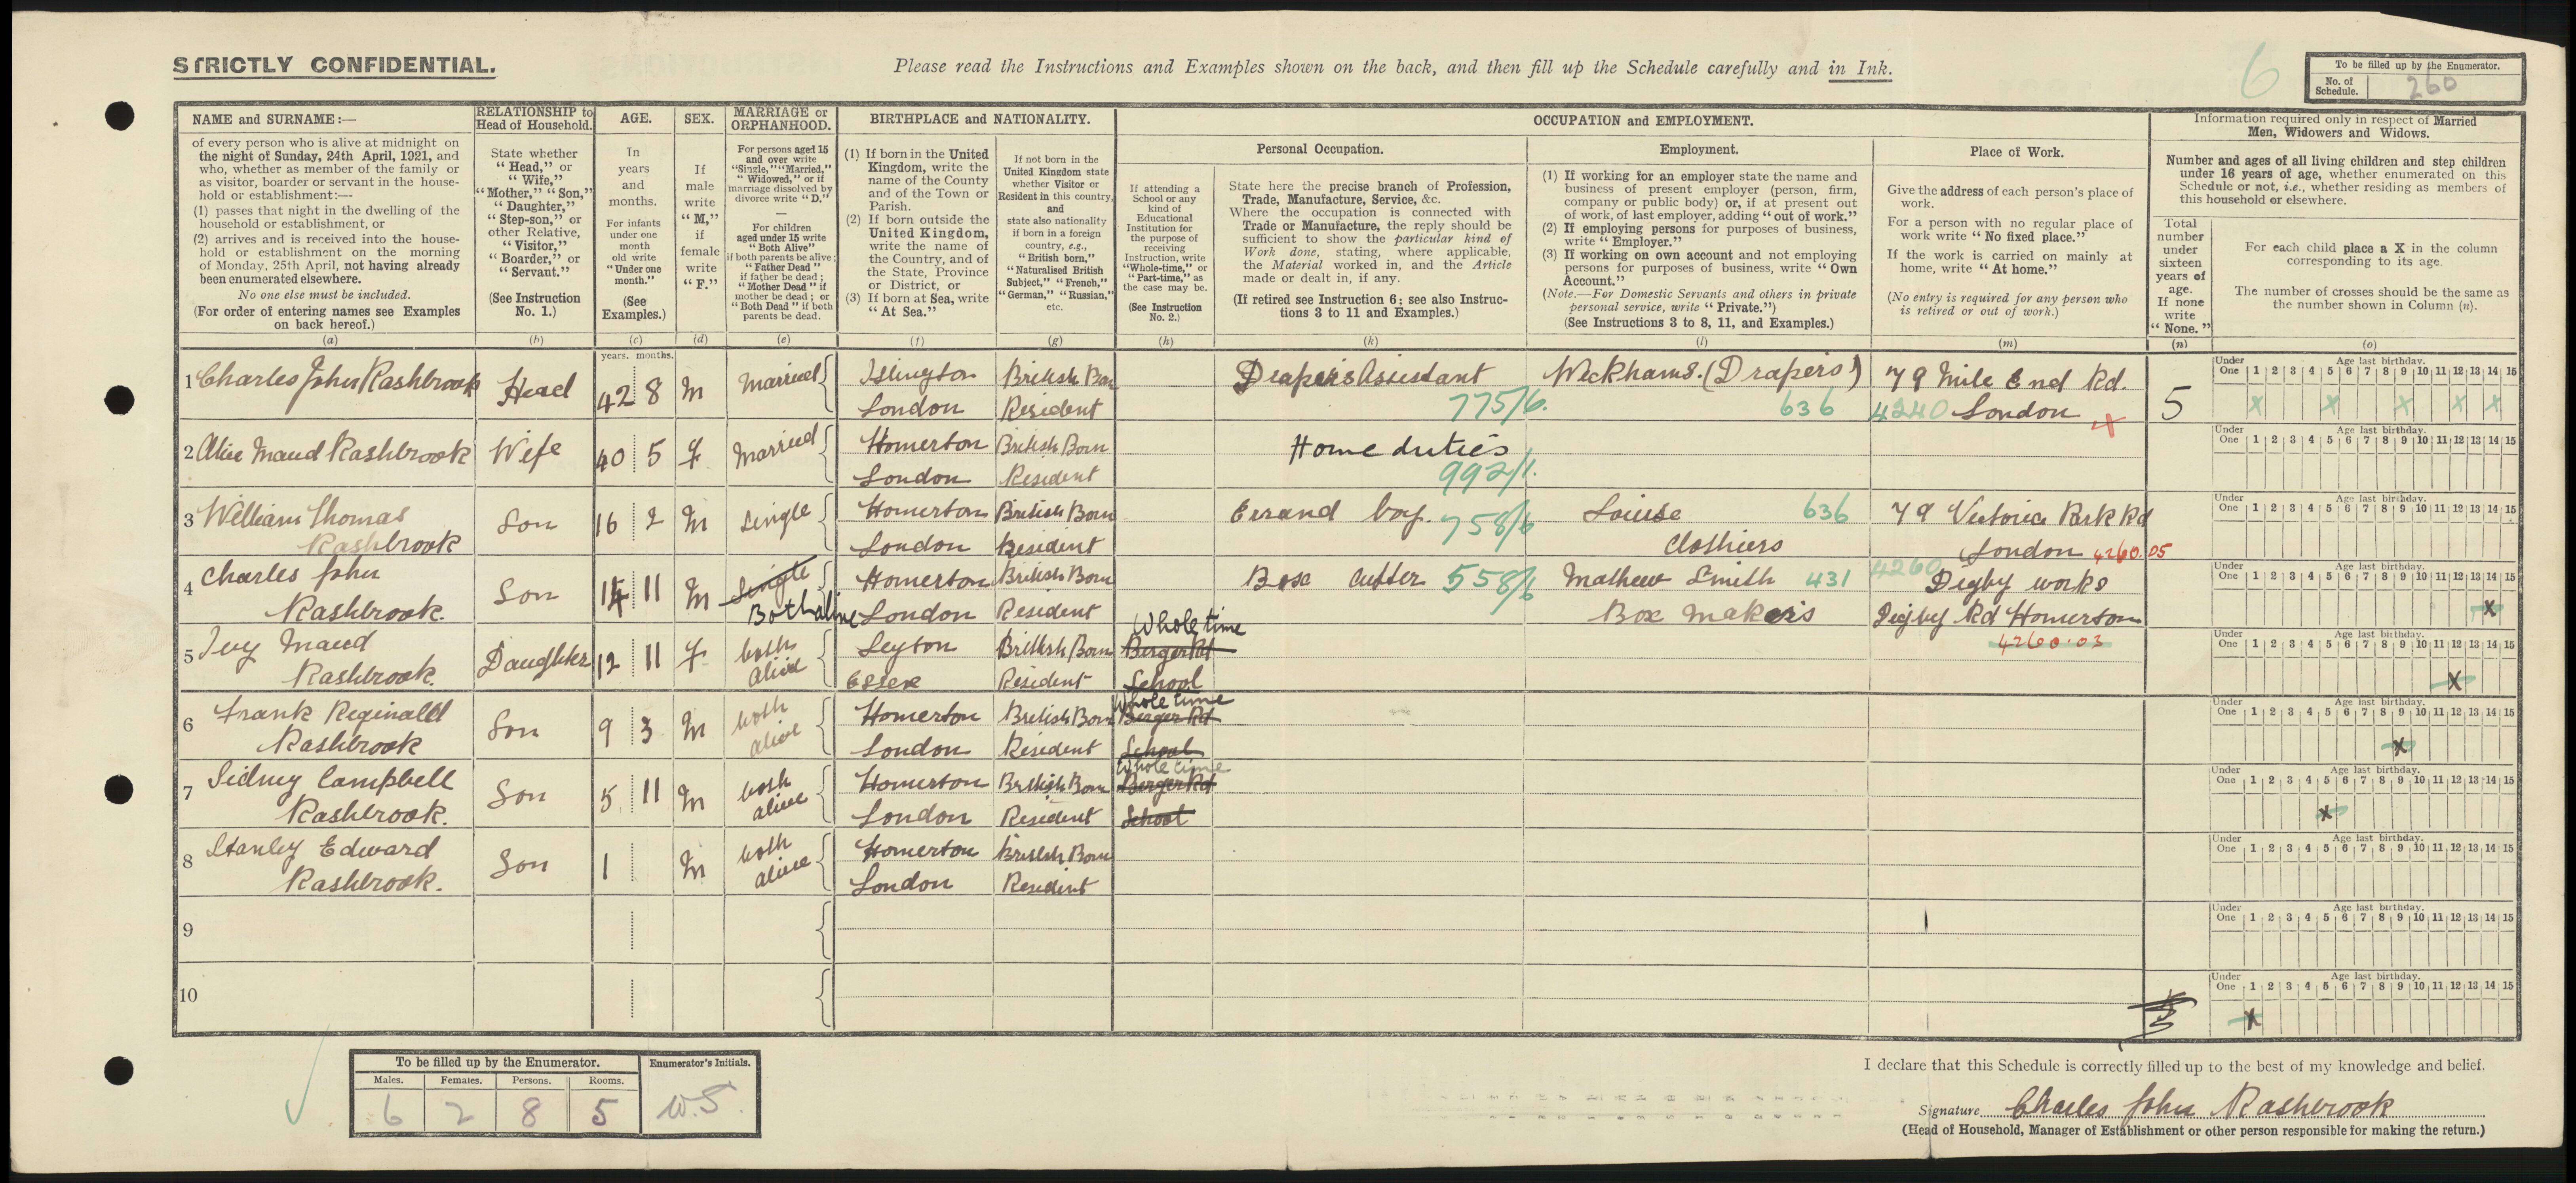 STRICTLY CONFIDENTIAL.
Please read the Instructions and Examples shown on the back, and then fill up the Schedule carefully and in Ink.
6
To be filled up by the Enumerator.
No. of Schedule. 260
NAME and SURNAME:—
of every person who is alive at midnight on
the night of Sunday, 24th April, 1921, and
who, whether as member of the family or
as visitor, boarder or servant in the house-
hold or establishment:—
(1) passes that night in the dwelling of the
household or establishment, or
(2) arrives and is received into the house-
hold or establishment on the morning
of Monday, 25th April, not having already
been enumerated elsewhere.
No one else must be included.
(For order of entering names see Examples
on back hereof.)
(a)
RELATIONSHIP to
Head of Household.
State whether
"Head," or
"Wife,"
"Mother," "Son,"
"Daughter,"
"Step-son," or
other Relative,
"Visitor,"
"Boarder," or
"Servant."
(See Instruction
No. 1.)
(b)
AGE.
In
years
and
months.
For infants
under one
month
old write
"Under one
month."
(See
Examples.)
(c)
SEX.
If
male
write
"M,"
if
female
write
"F."
(d)
MARRIAGE or
ORPHANHOOD.
For persons aged 15
and over write
"Single," "Married,"
"Widowed," or if
marriage dissolved by
divorce write "D."
—
For children
aged under 15 write
"Both Alive"
if both parents be alive;
"Father Dead"
if father be dead;
"Mother Dead" if
mother be dead; or
"Both Dead" if both
parents be dead.
(e)
BIRTHPLACE and NATIONALITY.
(1) If born in the United
Kingdom, write the
name of the County
and of the Town or
Parish.
(2) If born outside the
United Kingdom,
write the name of
the Country, and of
the State, Province
or District, or
(3) If born at Sea, write
"At Sea."
(f)
If not born in the
United Kingdom state
whether Visitor or
Resident in this country,
and
state also nationality
if born in a foreign
country, e.g.,
"British born,"
"Naturalised British
Subject," "French,"
"German," "Russian,"
etc.
(g)
OCCUPATION and EMPLOYMENT.
If attending a
School or any
kind of
Educational
Institution for
the purpose of
receiving
Instruction, write
"Whole-time," or
"Part-time," as
the case may be.
(See Instruction
No. 2.)
(h)
Personal Occupation.
State here the precise branch of Profession,
Trade, Manufacture, Service, &c.
Where the occupation is connected with
Trade or Manufacture, the reply should be
sufficient to show the particular kind of
Work done, stating, where applicable,
the Material worked in, and the Article
made or dealt in, if any.
(If retired see Instruction 6; see also Instruc-
tions 3 to 11 and Examples.)
(k)
Employment.
(1) If working for an employer state the name and
business of present employer (person, firm,
company or public body) or, if at present out
of work, of last employer, adding "out of work."
(2) If employing persons for purposes of business,
write "Employer."
(3) If working on own account and not employing
persons for purposes of business, write "Own
Account."
(Note.—For Domestic Servants and others in private
personal service, write "Private.")
(See Instructions 3 to 8, 11, and Examples.)
(l)
Place of Work.
Give the address of each person's place of
work.
For a person with no regular place of
work write "No fixed place."
If the work is carried on mainly at
home, write "At home."
(No entry is required for any person who
is retired or out of work.)
(m)
Information required only in respect of Married
Men, Widowers and Widows.
Number and ages of all living children and step children
under 16 years of age, whether enumerated on this
Schedule or not, i.e., whether residing as members of
this household or elsewhere.
Total
number
under
sixteen
years of
age.
If none
write
"None."
(n)
For each child place a X in the column
corresponding to its age.
The number of crosses should be the same as
the number shown in Column (n).
(o)
years. months.
1 Charles John Rashbrook Head 42 8 M Married Islington British Born Drapers Assistant Wickhams. (Drapers) 79 Mile End Rd. 5
London Resident 775/6. 636 4240 London X
Under One 1 2 3 4 5 6 7 8 9 10 11 12 13 14 15 Age last birthday.
X X X X X
2 Alice Maud Rashbrook Wife 40 5 F Married Homerton British Born Home duties
London Resident 992/1.
Under One 1 2 3 4 5 6 7 8 9 10 11 12 13 14 15 Age last birthday.
3 William Thomas Son 16 2 M Single Homerton British Born Errand boy. 758/6 636 79 Victoria Park Rd
Rashbrook London Resident Clothiers London 4260.05
Under One 1 2 3 4 5 6 7 8 9 10 11 12 13 14 15 Age last birthday.
4 Charles John Son 14 11 M Single Homerton British Born Box Cutter 558/6 Mathew Smith 431 4260 Digby works
Rashbrook. Both alive London Resident Box Makers Digby Rd Homerton
4260.03
Under One 1 2 3 4 5 6 7 8 9 10 11 12 13 14 15 Age last birthday.
X
5 Ivy Maud Daughter 12 11 F both Leyton British Born Whole time Berger Rd
Rashbrook. alive Essex Resident School
Under One 1 2 3 4 5 6 7 8 9 10 11 12 13 14 15 Age last birthday.
X
6 Frank Reginald Son 9 3 M both Homerton British Born Whole time Berger Rd
Rashbrook alive London Resident School
Under One 1 2 3 4 5 6 7 8 9 10 11 12 13 14 15 Age last birthday.
X
7 Sidney Campbell Son 5 11 M both Homerton British Born Whole time Berger Rd
Rashbrook. alive London Resident School
Under One 1 2 3 4 5 6 7 8 9 10 11 12 13 14 15 Age last birthday.
X
8 Stanley Edward Son 1 M both Homerton British Born
Rashbrook. alive London Resident
Under One 1 2 3 4 5 6 7 8 9 10 11 12 13 14 15 Age last birthday.
9
Under One 1 2 3 4 5 6 7 8 9 10 11 12 13 14 15 Age last birthday.
10
Under One 1 2 3 4 5 6 7 8 9 10 11 12 13 14 15 Age last birthday.
X
To be filled up by the Enumerator.
Males. Females. Persons. Rooms.
6 2 8 5
Enumerator's Initials.
W.S.
I declare that this Schedule is correctly filled up to the best of my knowledge and belief.
Signature Charles John Rashbrook
(Head of Household, Manager of Establishment or other person responsible for making the return.)